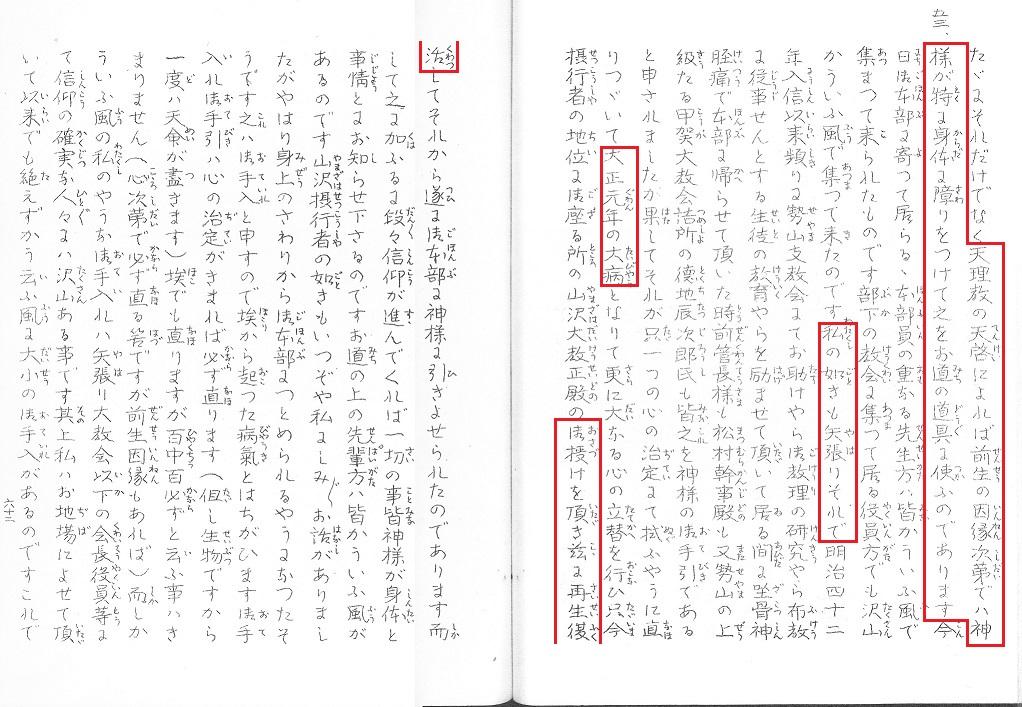 五三、
たゞにそれだけでなく天理教の天啓によれば前生の因縁次第でハ神
様が特に身体に障りをつけて之をお道の道具に使ふのであります今
日御本部に寄つて居らるゝ本部員の重なる先生方ハ皆かういふ風で
集まつて来られたものです部下の教会に集つて居る役員方でも沢山
かういふ風で集つて来たのです私の如きも矢張りそれで明治四十二
年入信以来頻りに勢山支教会にてお助けやら御教理の研究やら布教
に従事せんとする生徒の教育やらを励ませて頂いて居る間に坐骨神
経痛で本部に帰らせて頂いた時前管長様も松村幹事殿も又勢山の上
級たる甲賀大教会詰所の德地辰次郎氏も皆之を神様の御手引である
と申されましたが果してそれが只一つの心の治定にて拭ふやうに直
りつゞいて大正元年の大病となりて更に大なる心の立替を行ひ只今
摂行者の地位に御座る所の山沢大教正殿の御授けを頂き茲に再生復
活してそれから遂に御本部に神様に引きよせられたのであります而
して之に加ふるに段々信仰が進んでくれば一切の事皆神様が身体と
事情とにお知らせ下さるのですお道の上の先輩方ハ皆かういふ風が
あるのです山沢摂行者の如きもいつぞや私にしみ〴〵お話がありまし
たがやはり身上のさわりから御本部につとめられるやうになつたそ
うです之ハ御手入と申すので埃から起つた病氣とはちがひます御手
入れ御手引ハ心の治定がきまれば必ず直ります(但し生物ですから
一度ハ天命が盡きます)埃でも直りますが百中百必ずと云ふ事ハき
まりません(心次第で必ず直る筈ですが前生因縁もあれば)而しか
ういふ風の私のやうな御手入れハ矢張り大教会以下の会長役員等に
て信仰の確実な人々にハ沢山ある事です其上私ハお地場によせて頂
いて以来でも絶えずかう云ふ風に大小の御手入があるのですこれで
六十三